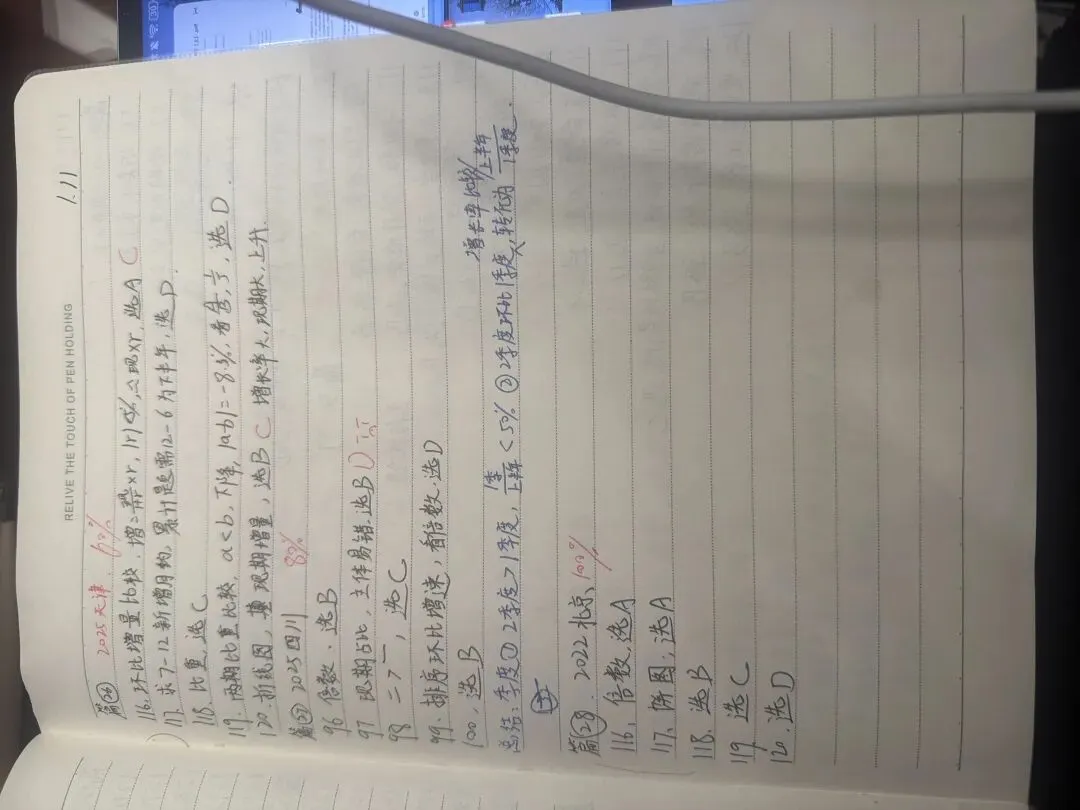 RELIVE THE TOUCH OF PEN HOLDING
1.11
篇26 2025天津 60%
116. 环比增量比较,增=×r, |r|<5%, ≈现×r, 选A C
117. 求7-12新增月均,累计题需12-6为下半年,选D.
118. 比重,选C
119 两期比重比较, a<b, 下降, |ab|=-8.3%, 看含, 选D.
120. 折线图,现期增量,选B C 增长率大,现期大,上升.
篇27 2025四川 80%
96 倍数.选B
97 现期占比,主体易错.选B D
98 二>一,选C
99. 排序环比增速,看倍数.选D
100, 选B
增长率比较
总结:季度①2季度>1季度, 1季/上半年<50% ②2季度环比1季度,转化为上半年/1季度.
篇28. 2022北京、100%
116、倍数,选A
117、饼图,选A
118. 选B
119 选C
120. 选D